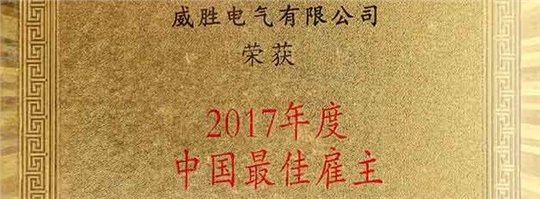 威胜电气有限公司
荣获
2017年度
中国最佳雇主